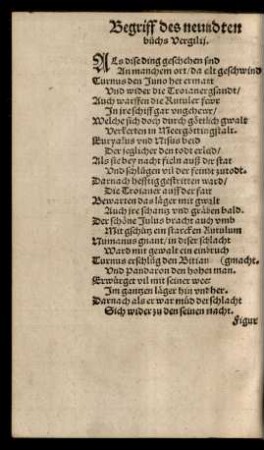 Begriff des neundten
bůchs Vergilij.
ALs dise ding geschehen sind
An manchem ort / da eilt geschwind
Turnus den Juno her ermant
Und wider die Troianer gsandt /
Auch warffen die Rutuler fewr
In jre schiff gar ungehewr /
Welche sich doch durch göttlich gwalt
Verkerten in Meergöttin gstalt.
Euryalus und Nisus beid
Der jeglicher den todt erleid /
Als sie bey nacht fieln auß der stat
Und schlůgen vil der feind zu todt.
Darnach hefftig gestritten ward /
Die Troianer auff der fart
Bewarten das läger mit gwalt
Auch jre schantz und gräben bald.
Der schöne Julus bracht auch umb
Mit gschütz ein starcken Rutulum
Numanus gnant / in diser schlacht
Ward mit gewalt ein einbruch
Turnus erschlůg den Bitian (gmacht.
Und Pandaron den hohen man.
Erwürget vil mit seiner wee:
Im gantzen läger hin und her.
Darnach als er war müd der schlacht
Sich wider zu den seinen macht.
Figur